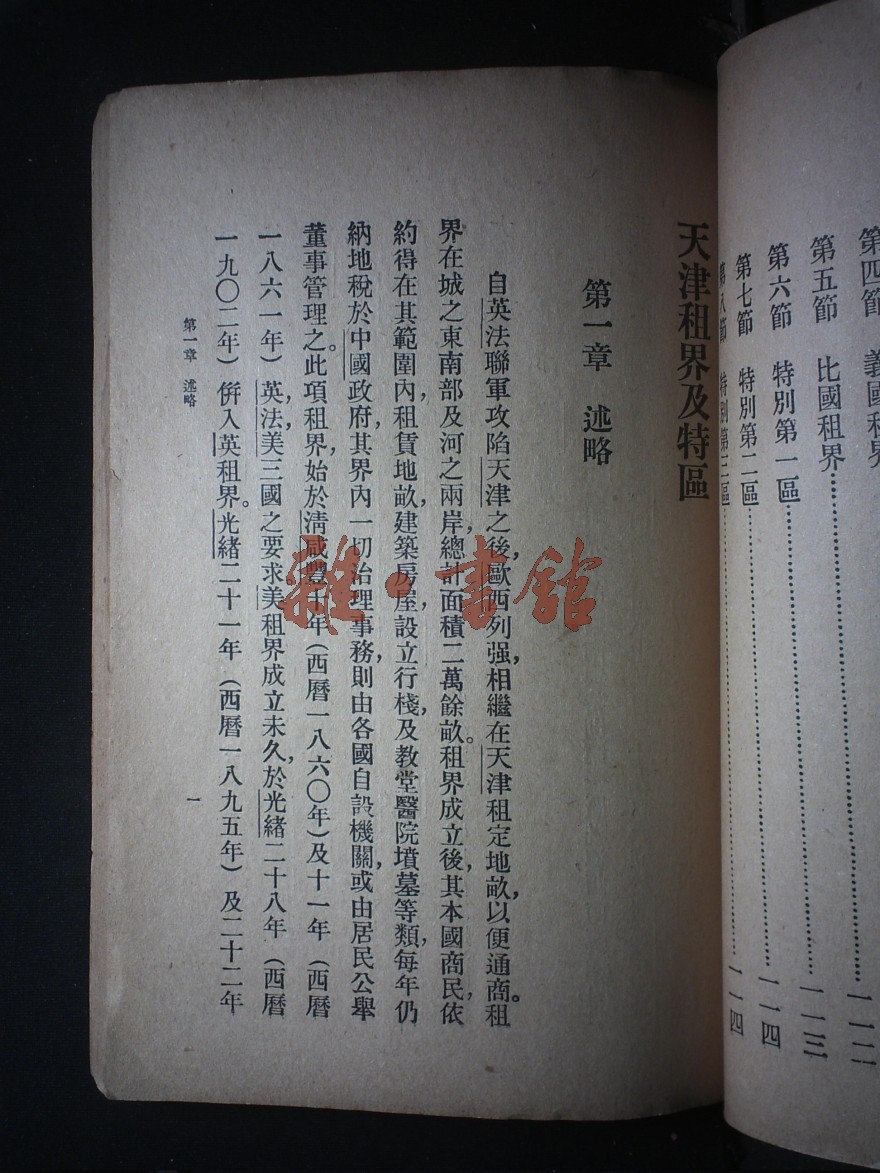 第四節　義國租界
第五節　比國租界……一一三
第六節　特別第一區……一一四
第七節　特別第二區……一一四
第八節　特別第三區
天津租界及特區
第一章　述略
自英法聯軍攻陷天津之後，歐西列强，相繼在天津租定地畝，以便通商。租
界在城之東南部及河之兩岸，總計面積二萬餘畝。租界成立後，其本國商民，依
約得在其範圍內，租賃地畝，建築房屋，設立行棧，及教堂醫院墳墓等類，每年仍
納地稅於中國政府，其界內一切治理事務，則由各國自設機關，或由居民公舉
董事管理之。此項租界，始於淸咸豐十年（西曆一八六〇年）及十一年（西曆
一八六一年）英，法，美三國之要求，美租界成立未久，於光緒二十八年（西曆
一九〇二年）倂入英租界。光緒二十一年（西曆一八九五年）及二十二年
第一章　述略
一
雜·書館